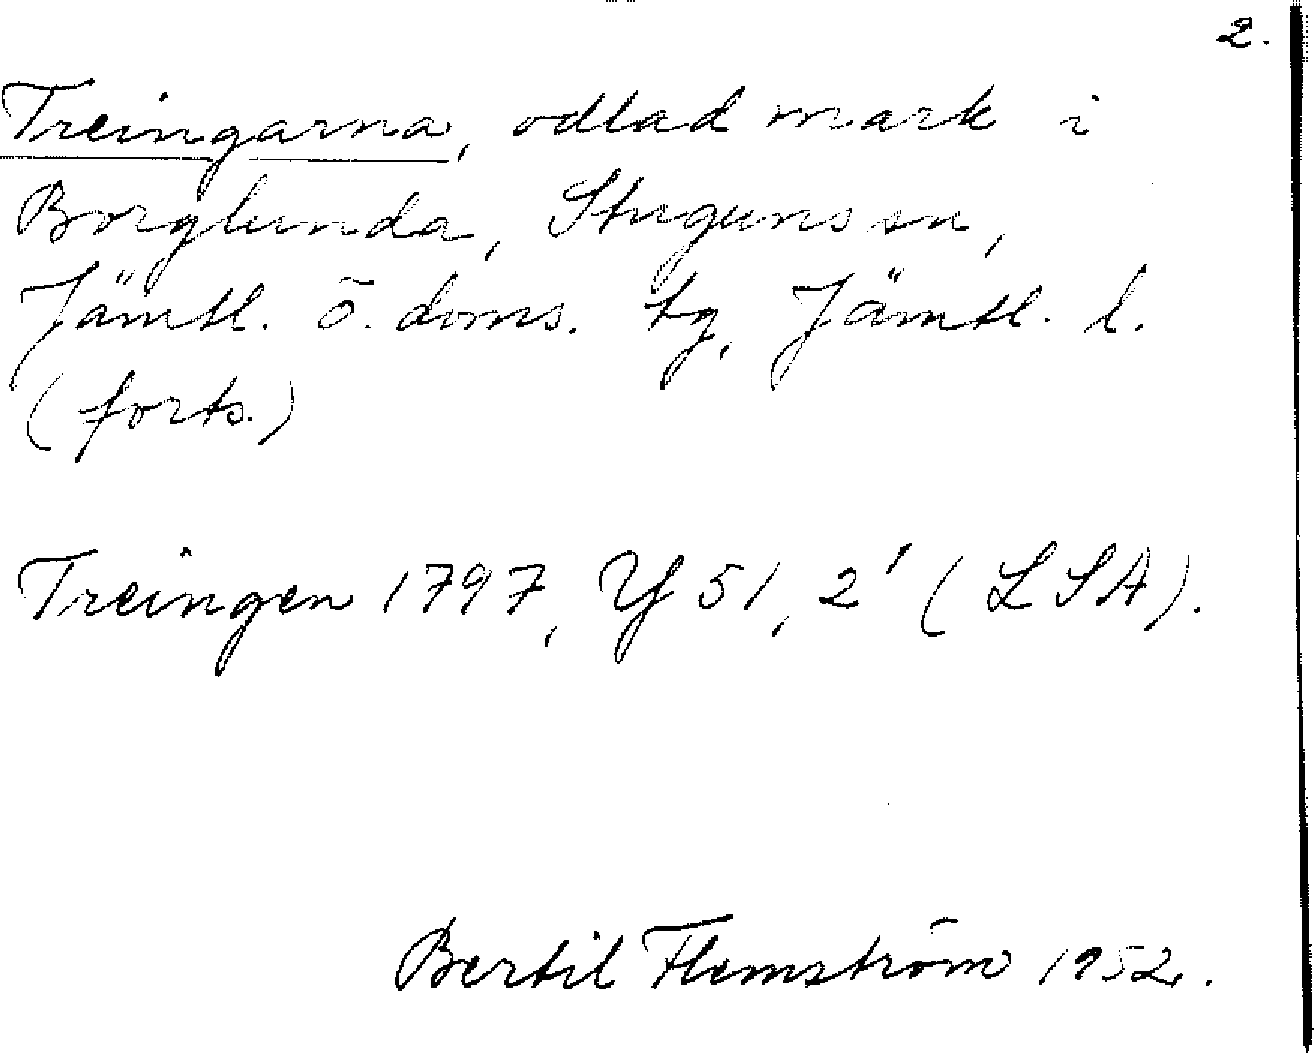 2.
Treingarna, odlad mark i
Borglunda, Stuguns sn,
Jämtl. ö. doms. tg, Jämtl. l.
(forts.)
Treingen 1797, Y 51, 2' (LSA).
Bertil Flemström 1952.